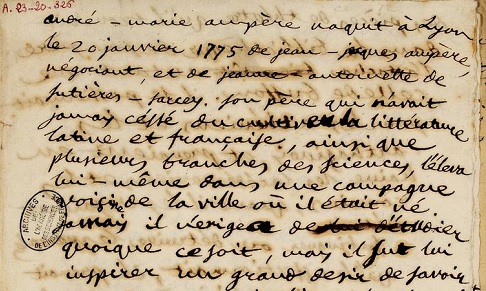 A. 23-20-326
andré - marie ampère naquit à Lyon
le 20 janvier 1775 de jean - jaques ampère,
négociant, et de jeanne - antoinette de
sutières - sarcey. son père qui n'avait
jamais cessé de cultiver la littérature
latine et française, ainsi que
plusieurs branches des sciences, l'éleva
lui - même dans une campagne
voisine de la ville où il était né
jamais il n'exigea de lui d'étudier
quoique ce soit, mais il sut lui
inspirer un grand desir de savoir
ARCHIVES DE L'ACADÉMIE DES SCIENCES DE L'INSTITUT